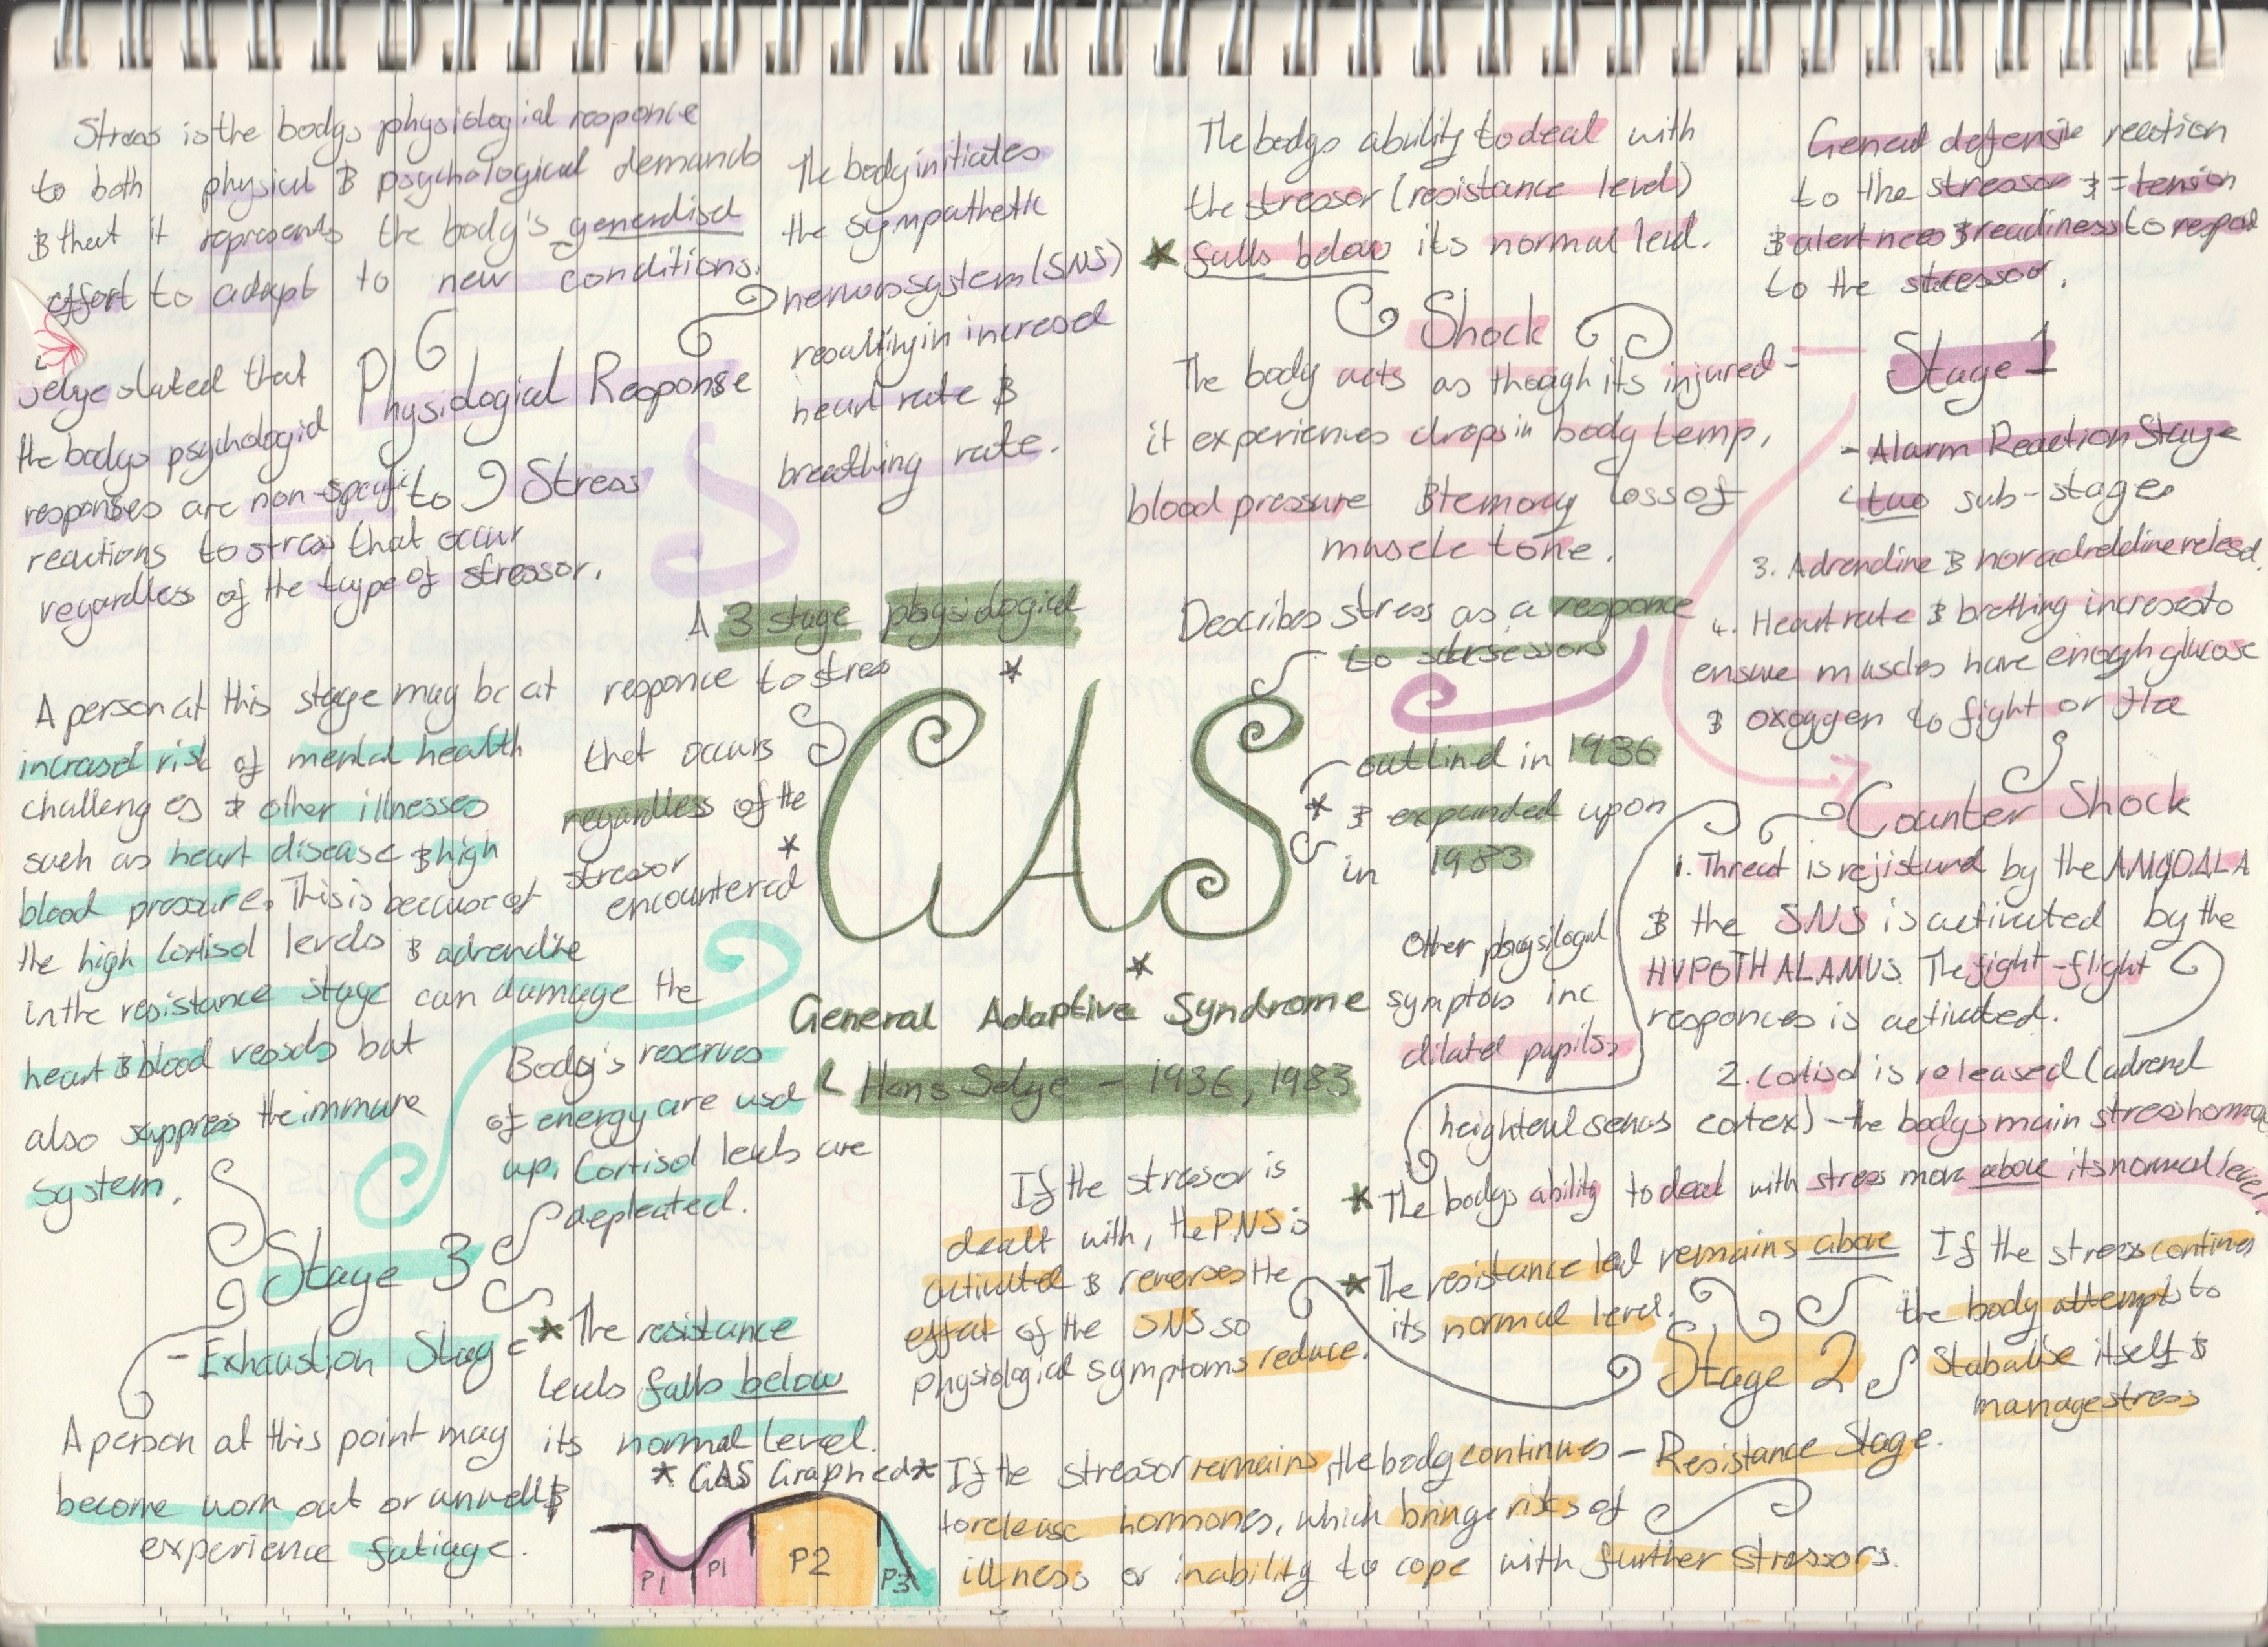 Stress is the bodys physiological responce
to both physical & psychological demands
& that it represents the body's generalised
effort to adapt to new conditions.
Selye stated that
the bodys psychologial
responses are non-specific to
reactions to stress that occur
regardless of the type of stressor.
Physiological Response
to Stress
The body initiates
the sympathetic
nervous system (SNS)
resulting in incresed
heart rate &
breathing rate.
The bodys ability to deal with
the stressor (resistance level)
* falls below its normal level.
Shock
The body acts as though its injured -
it experiences drops in body temp,
blood pressure & temory loss of
muscle tone.
General defensive reaction
to the stressor & = tension
& alertness & readiness to respod
to the stressor.
Stage 1
- Alarm Reaction Stage
two sub-stages
3. Adrenaline & noradreldine relesd.
4. Heart rate & brething increses to
ensure muscles have enough glucose
& oxoggen to fight or flee
Counter Shock
1. Threat is rejistured by the AMYDALA
& the SNS is activated by the
HYPOTHALAMUS. The fight-flight
responces is activated.
2. Cortisol is released (adrenal
cortex) - the bodys main stress hormone
Other physiologal
symptoms inc
dilated pupils,
heightened senses
* The bodys ability to deal with stress move above its normal level.
A 3 stage physiological
responce to stress
that occurs
regardless of the
stressor
encountered
*
*
GAS
*
General Adaptive Syndrome
Hans Selye - 1936, 1983
Describes stress as a responce
to
* outlind in 1936
& expanded upon
in 1983
* The resistance level remains above
its normal level.
Stage 2
- Resistance Stage.
If the stress contines
the body attempts to
Stabalise itself &
manage stress
If the stressor is
dealt with, the PNS is
activated & reverses the
effect of the SNS so
physiological symptoms reduce.
If the stressor remains, the body continues
to release hormones, which brings risks of
illness or inability to cope with further stressors.
A person at this stage may be at
incrased risk of mental health
challenges & other illnesses
such as heart disease & high
blood pressure. This is because of
the high Cortisol levels & adrenaline
in the resistance stage can damage the
heart & blood vessels but
also suppress the immune
system.
Body's reserves
of energy are used
up. Cortisol levels are
depleated.
Stage 3
- Exhaustion Stage
* The resistance
levels falls below
its normal level.
A person at this point may
become worn out or unwell &
experience fatiage.
* GAS Graphed *
P1 P1 P2 P3